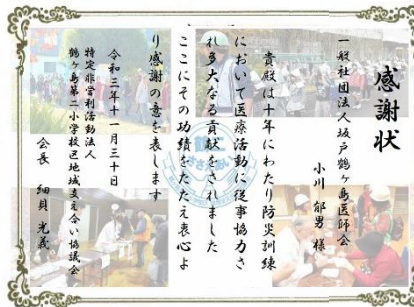 感謝状
一般社団法人坂戸鶴ヶ島医師会
小川 郁男 様
貴殿は十年にわたり防災訓練
において医療活動に従事協力さ
れ多大なる貢献をされました
ここにその功績をたたえ衷心よ
り感謝の意を表します
令和三年十一月三十日
特定非営利活動法人
鶴ヶ島第二小学校区地域支え合い協議会
会長 細貝 光義